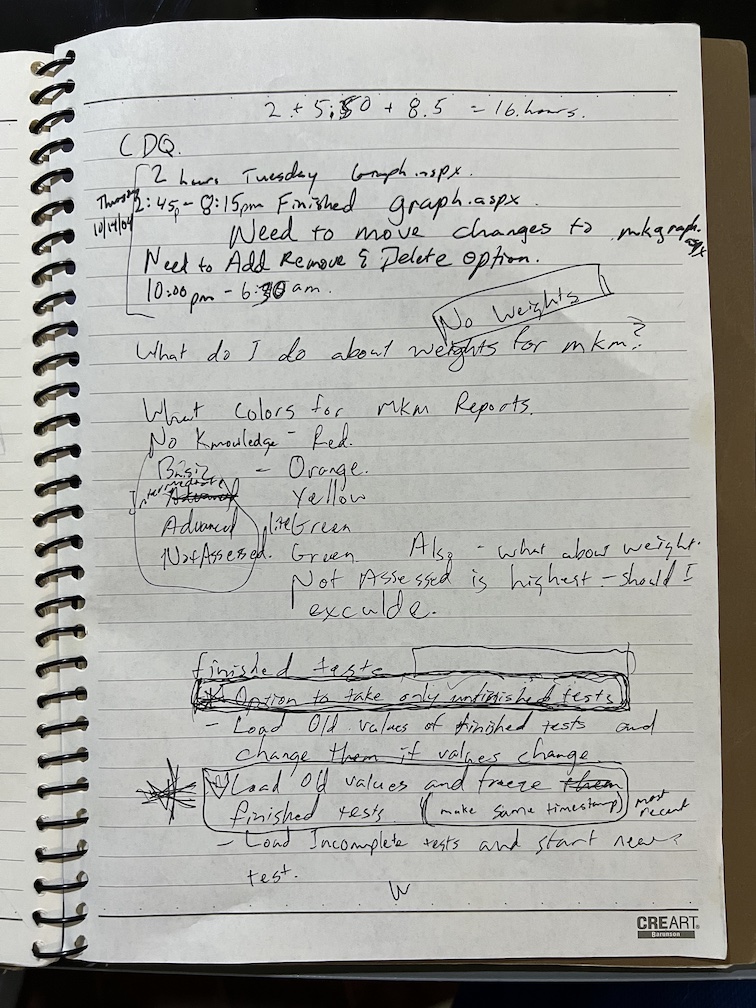 2 + 5:50 + 8.5 = 16 hours.
CDQ.
2 hours Tuesday Graph.aspx.
Thursday 2:45p - 8:15pm Finished graph.aspx.
10/14/04
Need to move changes to mkgraph.aspx
Need to Add Remove & Delete option.
10:00 pm - 6:30 am.
No Weights
What do I do about weights for mkm?
What Colors for mkm Reports.
No Knowledge - Red.
Basic - Orange.
Intermediate Yellow
Advanced liteGreen
Not Assessed. Green Also - what about weight.
Not Assessed is highest - should I
exculde.
finished tests
Option to take only unfinished tests
- Load Old values of finished tests and
change them if values change
Load Old values and freeze them
finished tests. (make same timestamp) most recent
- Load Incomplete tests and start new
test.
W
CREART
Barunson